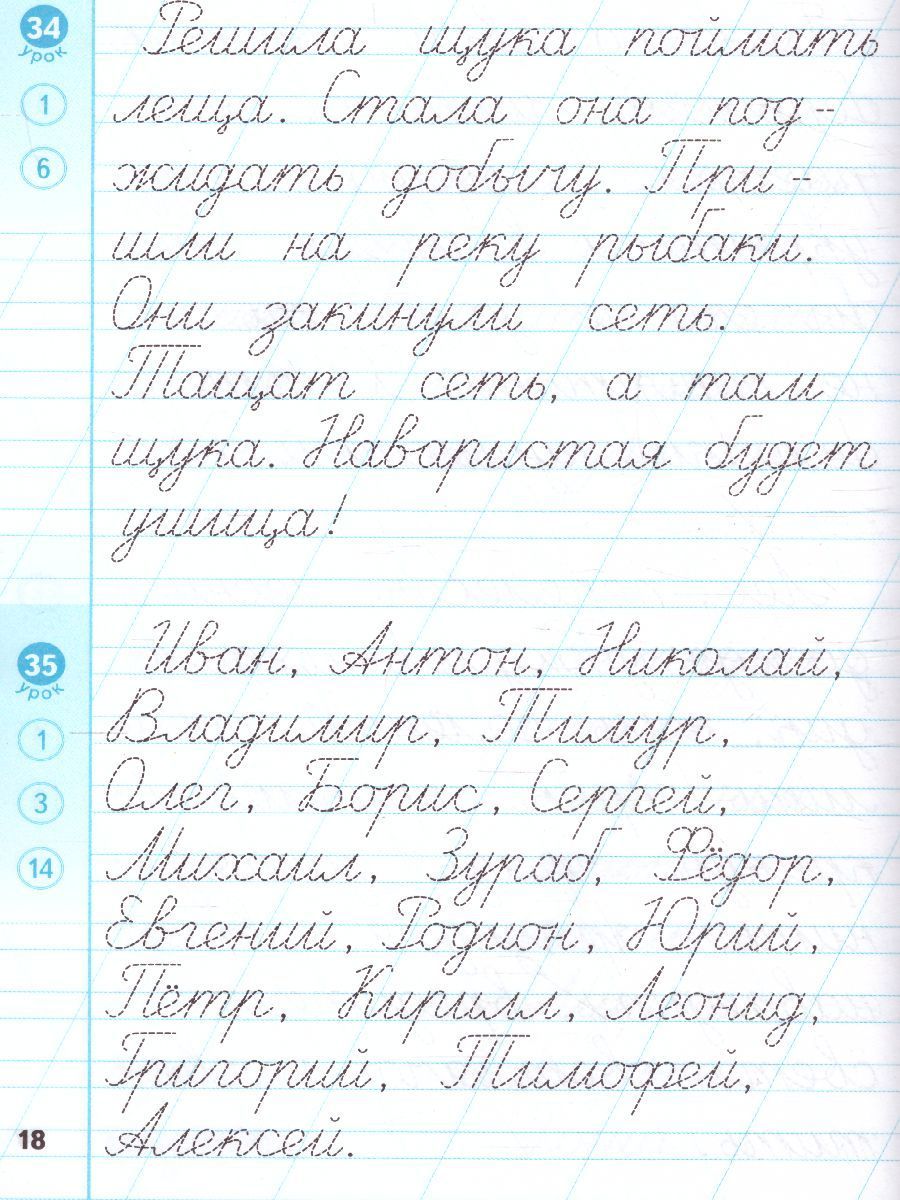 34
урок
1
6
Решила щука поймать
леща. Стала она под-
жидать добычу. При-
шли на реку рыбаки.
Они закинули сеть.
Тащат сеть, а там
щука. Наваристая будет
ушица!
35
урок
1
3
14
Иван, Антон, Николай,
Владимир, Тимур,
Олег, Борис, Сергей,
Михаил, Зураб, Фёдор,
Евгений, Родион, Юрий,
Пётр, Кирилл, Леонид,
Григорий, Тимофей,
Алексей.
18